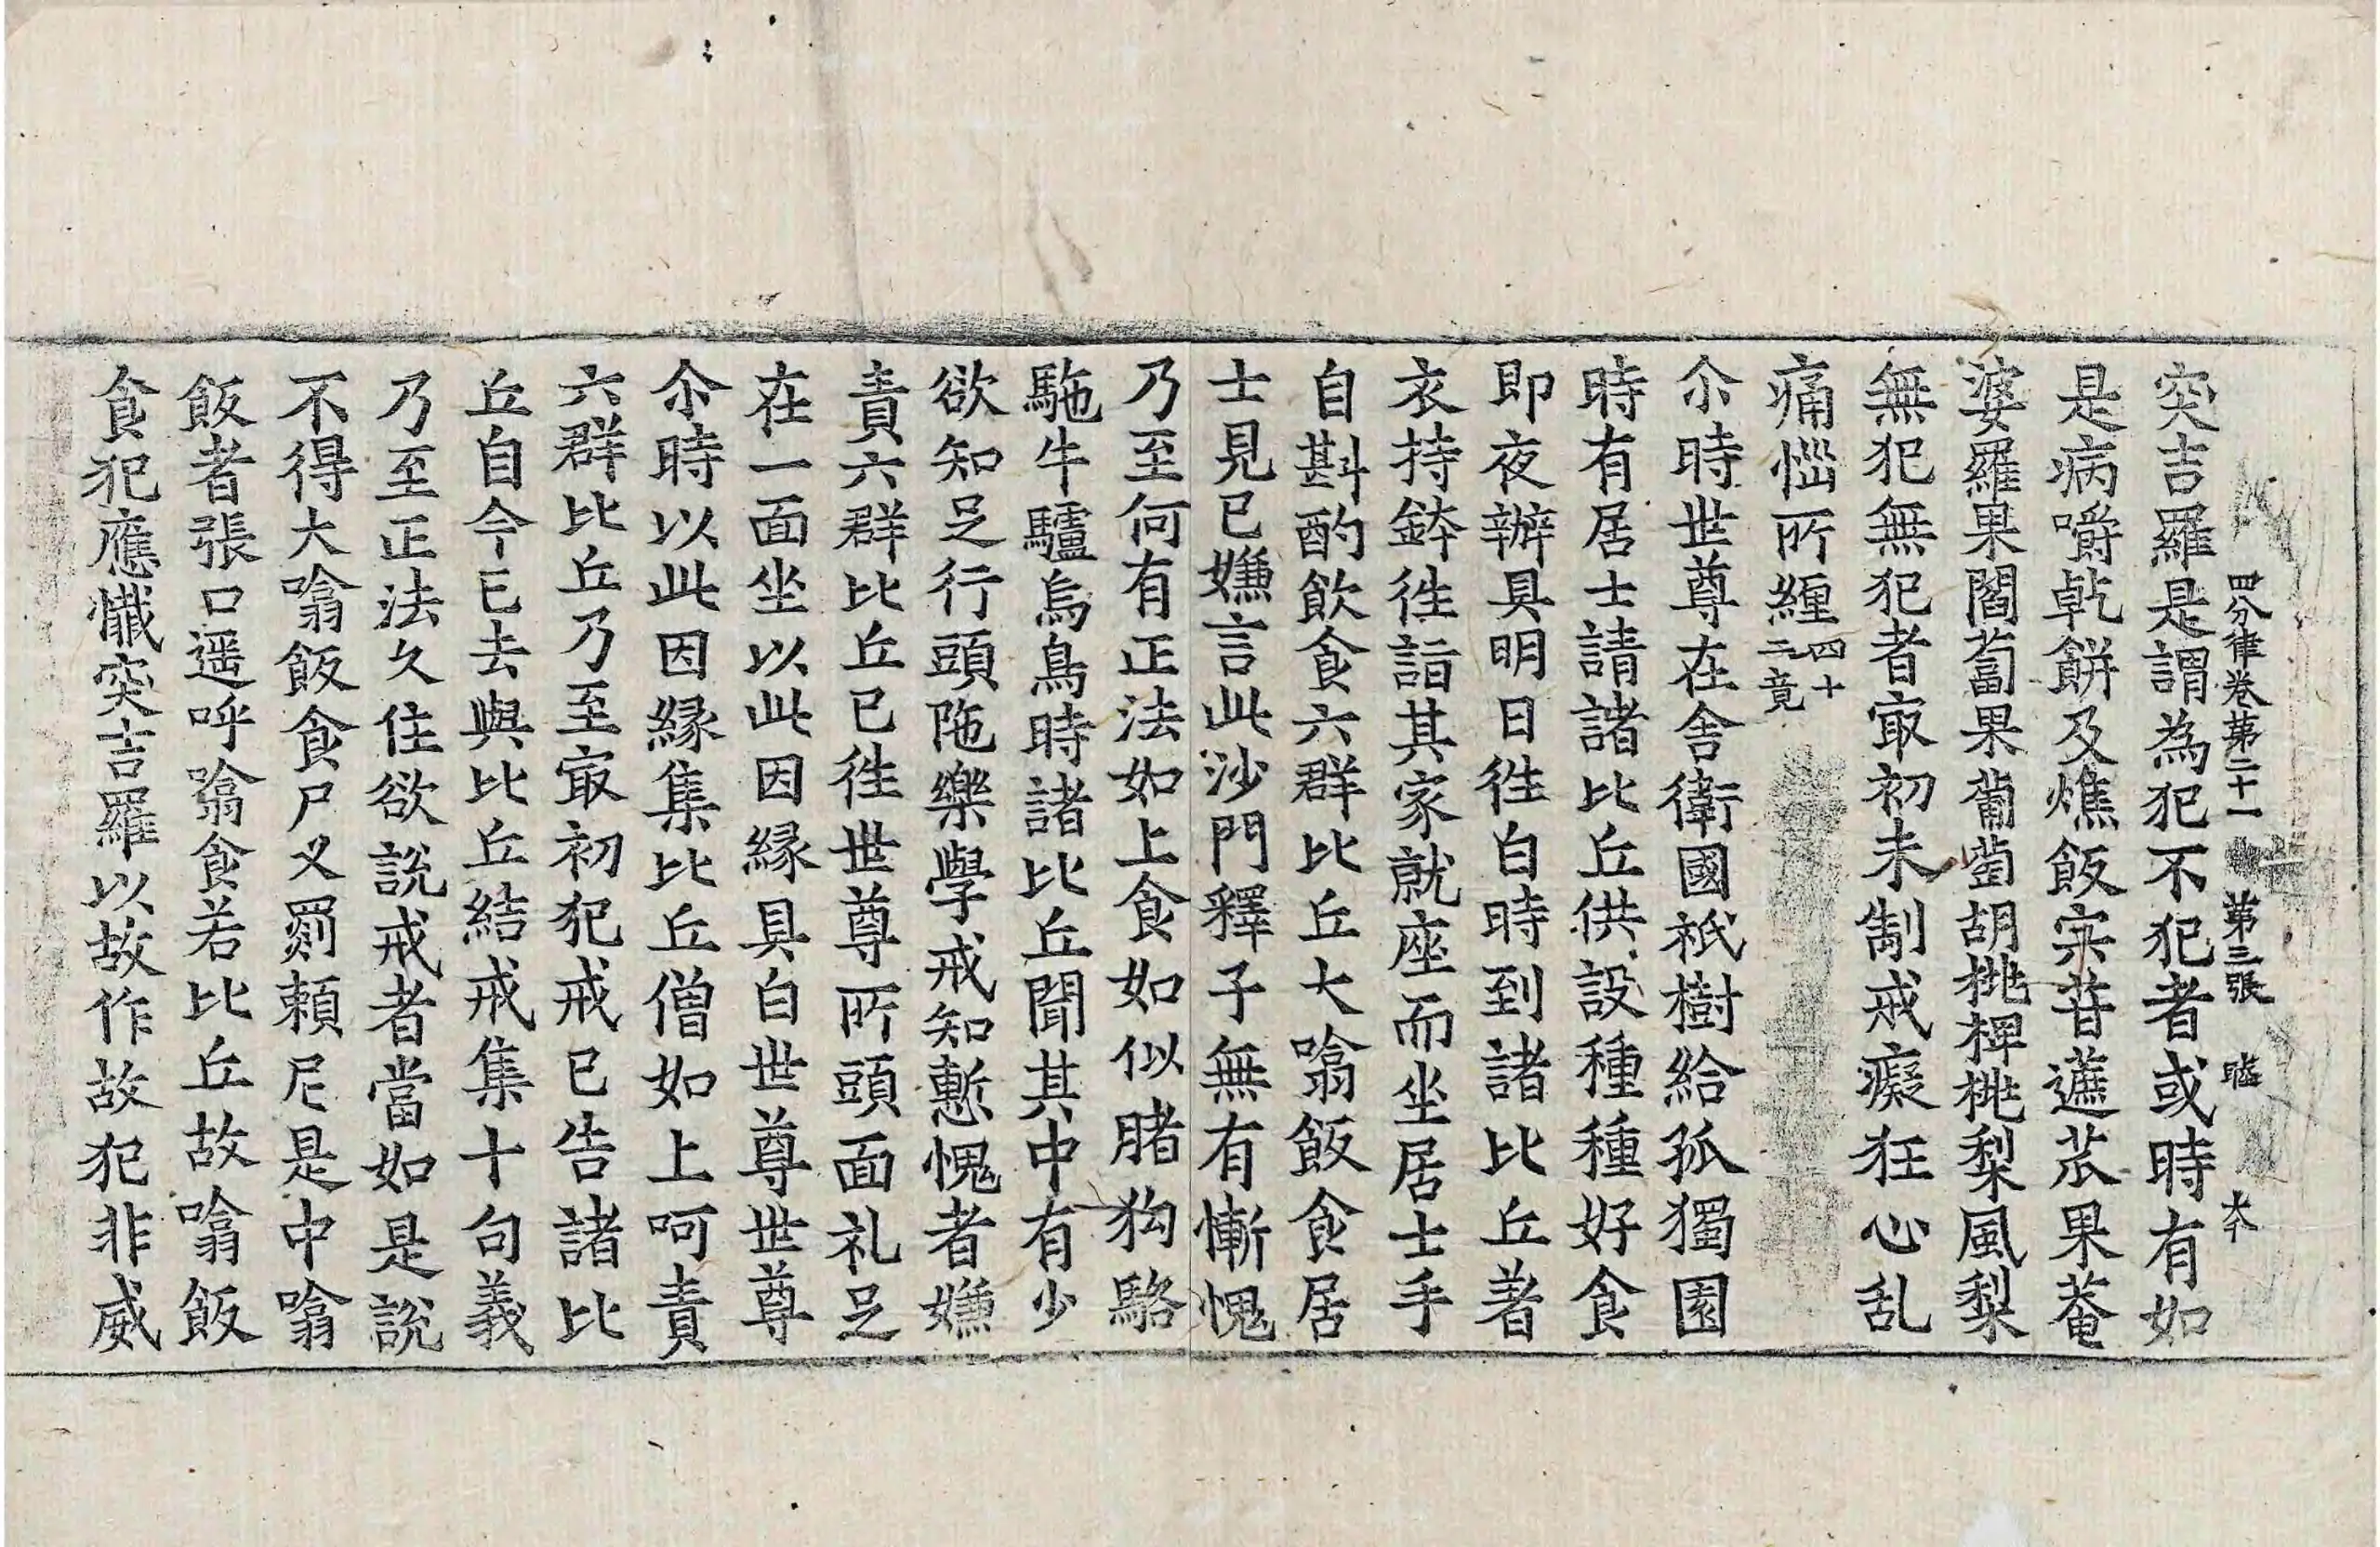 四分律卷第二十一 第三張 𥁞 大个
突吉羅是謂為犯不犯者或時有如
是病嚼乹餅及燋飯宍苷遮苽果菴
婆羅果閻蔔果蒲萄胡桃椑桃梨風梨
無犯無犯者㝡初未制戒癡狂心乱
痛惱所纏四十二竟
尒時世尊在舍衛國祇樹給孤獨園
時有居士請諸比丘供設種種好食
即夜辦具明日徃白時到諸比丘著
衣持鉢徃詣其家就座而坐居士手
自斟酌飲食六群比丘大噏飯食居
士見已嫌言此沙門釋子無有慚愧
乃至何有正法如上食如似賭狗駱
駞牛驢烏鳥時諸比丘聞其中有少
欲知足行頭陁樂學戒知慙愧者嫌
責六群比丘已徃世尊所頭面礼足
在一面坐以此因緣具白世尊世尊
尒時以此因緣集比丘僧如上呵責
六群比丘乃至㝡初犯戒已告諸比
丘自今已去與比丘結戒集十句義
乃至正法久住欲說戒者當如是說
不得大噏飯食尸叉罽賴尼是中噏
飯者張口遥呼噏食若比丘故噏飯
食犯應懺突吉羅以故作故犯非威